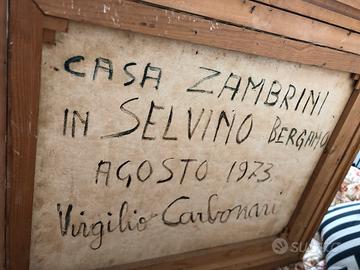 CASA ZAMBRINI
IN SELVINO BERGAMO
AGOSTO 1973
Virgilio Carbonari
subito